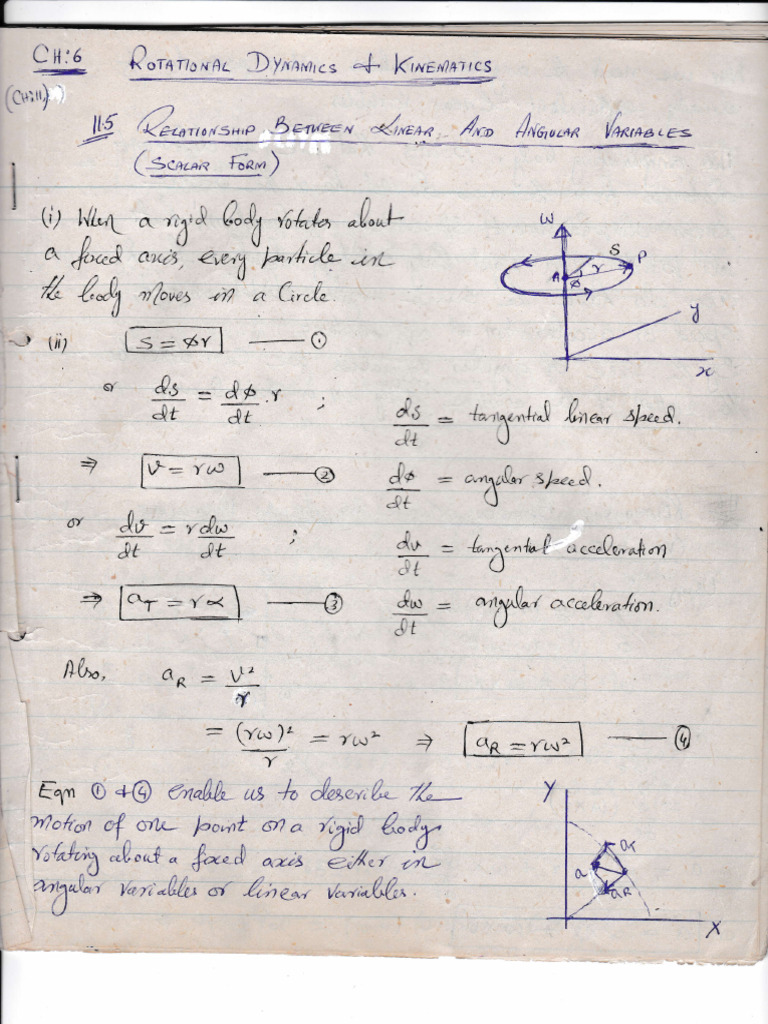 CH:6 ROTATIONAL DYNAMICS & KINEMATICS
(CH:11)
11.5 RELATIONSHIP BETWEEN LINEAR AND ANGULAR VARIABLES
(SCALAR FORM)
(i) When a rigid body rotates about
a fixed axis, every particle in
the body moves in a Circle.
W
S
P
A
r
ϕ
y
x
(ii) S = ϕr ①
or ds/dt = dϕ/dt . r ;
ds/dt = tangential linear speed.
⇒ v = rω ②
dϕ/dt = angular speed.
or dv/dt = r dω/dt ;
dv/dt = tangential acceleration
⇒ a_T = r∝ ③
dω/dt = angular acceleration.
Also, a_R = V²/r
= (rω)²/r = rω² ⇒ a_R = rω² ④
Eqn ① & ④ enable us to describe the
motion of one point on a rigid body
rotating about a fixed axis either in
angular variables or linear variables.
Y
a_T
a
a_R
X